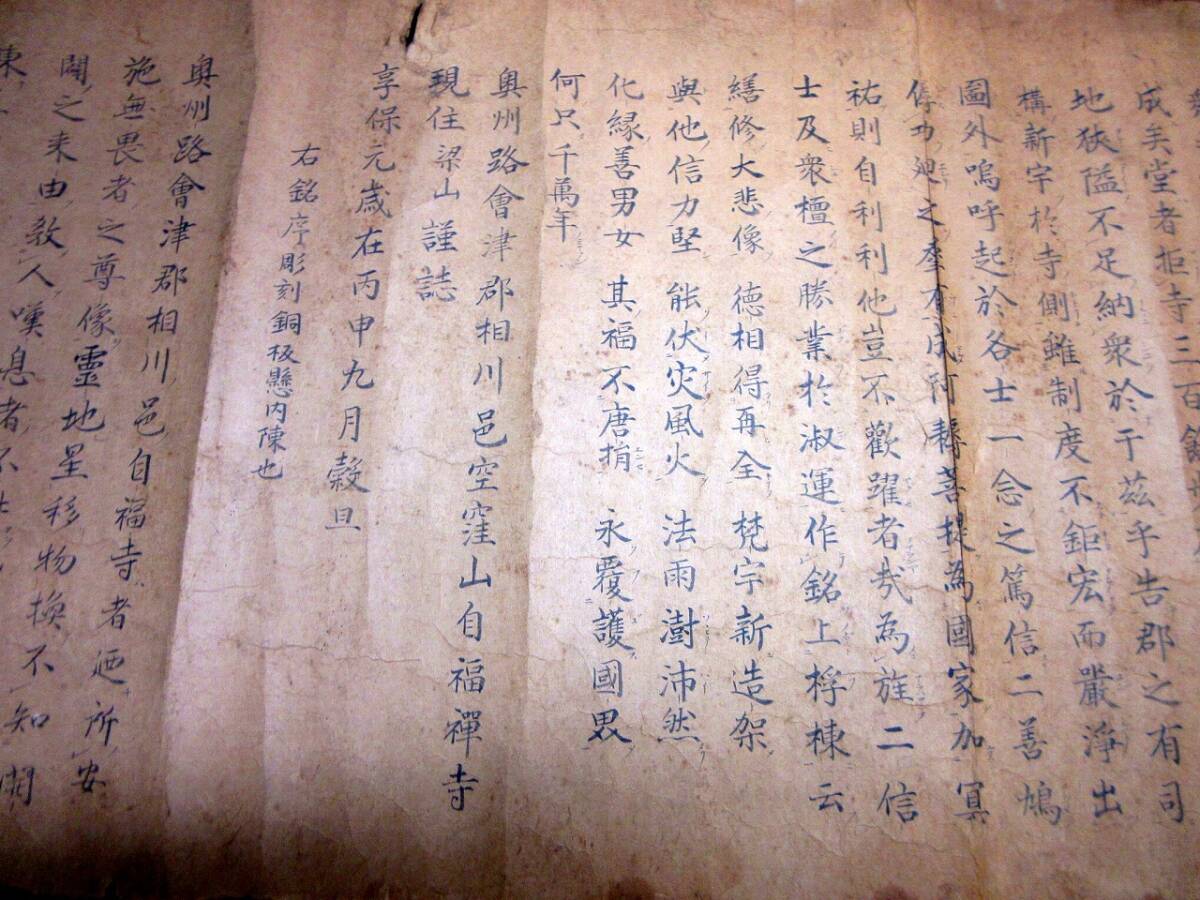 成矣堂者拒寺三百餘
地狹隘不足納衆於于茲乎告郡之有司
構新宇於寺側雖制度不鉅宏而嚴淨出
圖外嗚呼起於各士一念之篤信二善鳩
之羣有成 菩提為國家加冥
祐則自利利他豈不歡躍者哉為旌二信
士及衆檀之勝業於淑運作銘上桴棟云
繕修大悲像 德相得再全 梵宇新造架
與他信力堅 能伏灾風火 法雨澍沛然
化縁善男女 其福不唐捐 永覆護國
何只千萬年
奧州路會津郡相川邑空窪山自福禪寺
現住梁山謹誌
享保元歳在丙申九月穀旦
右銘序彫刻銅板懸内陳也
奧州路會津郡相川邑自福寺者廼所安
施無畏者之尊像靈地星移物換不知
聞之来由敎人嘆息者不